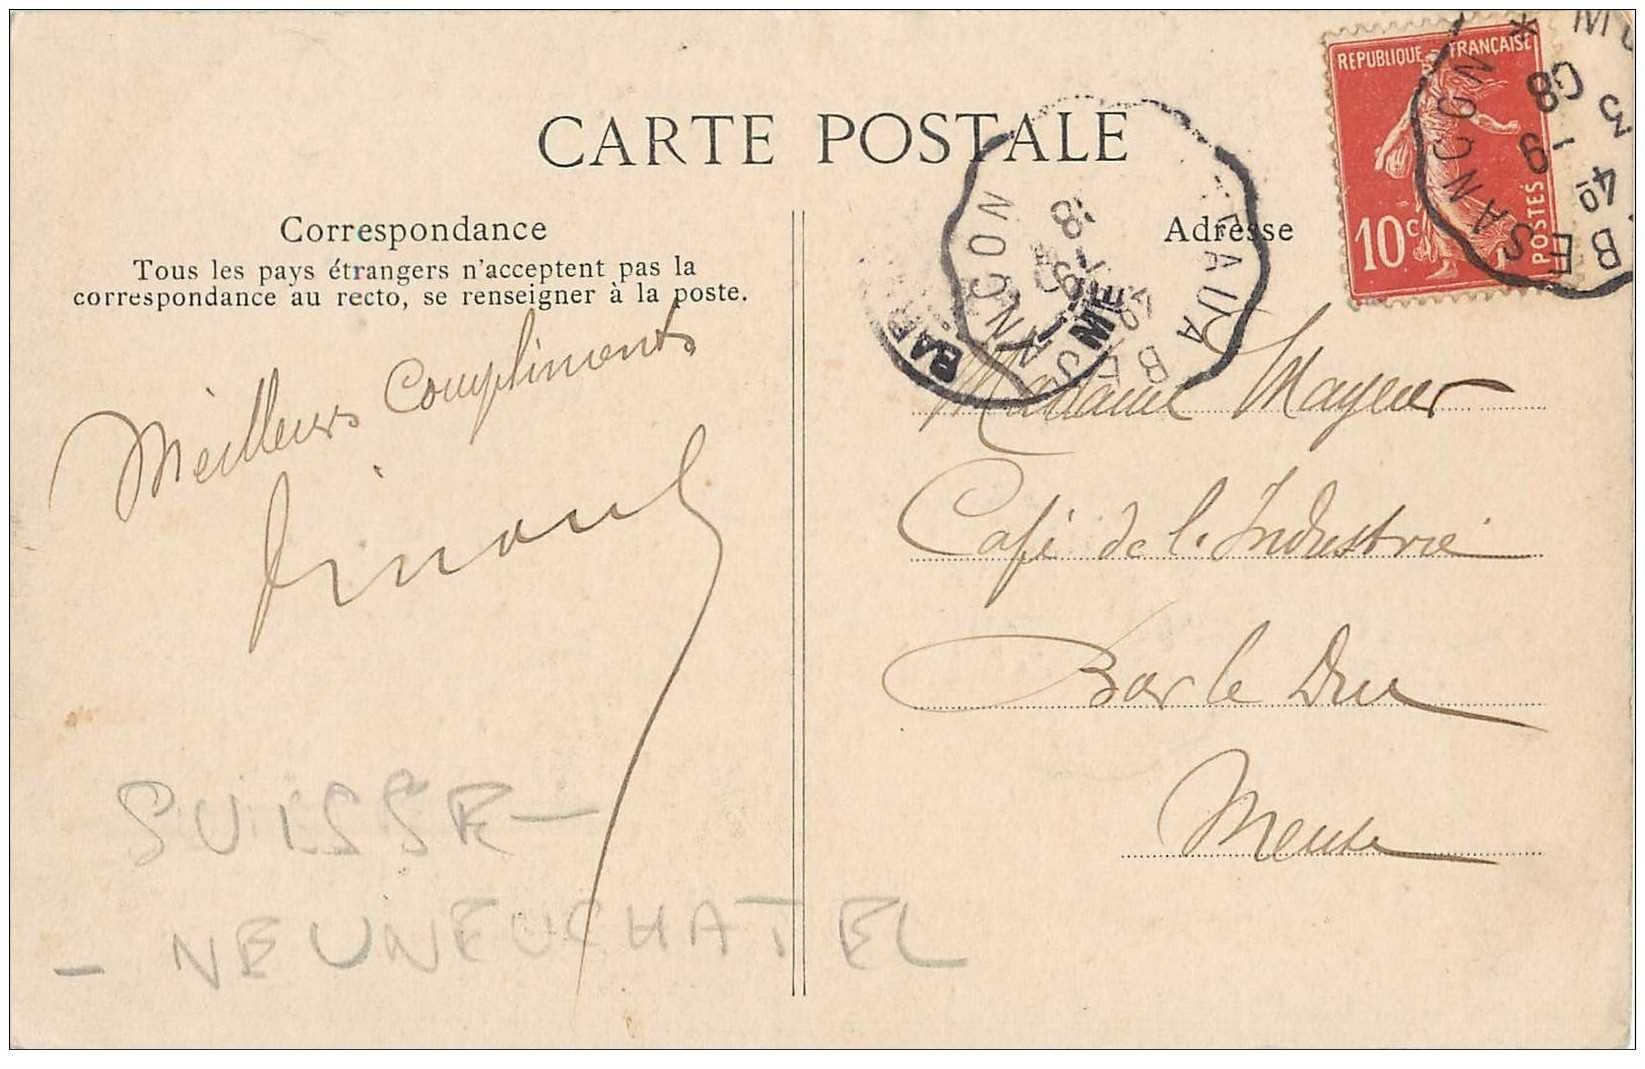 CARTE POSTALE
Correspondance
Tous les pays étrangers n'acceptent pas la
correspondance au recto, se renseigner à la poste.
Meilleurs Compliments
SUISSE -
- NEUNEUCHATEL
Adresse
REPUBLIQUE FRANÇAISE
10c
POSTES
BESANCON
3
9 - 08
40
ANCON
Madame Mayeur
Café de l'Industrie
Bar le Duc
Meuse